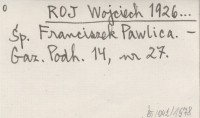 o
ROJ Wojciech 1926...
Śp. Franciszek Pawlica. –
Gaz. Podh. 14, nr 27.